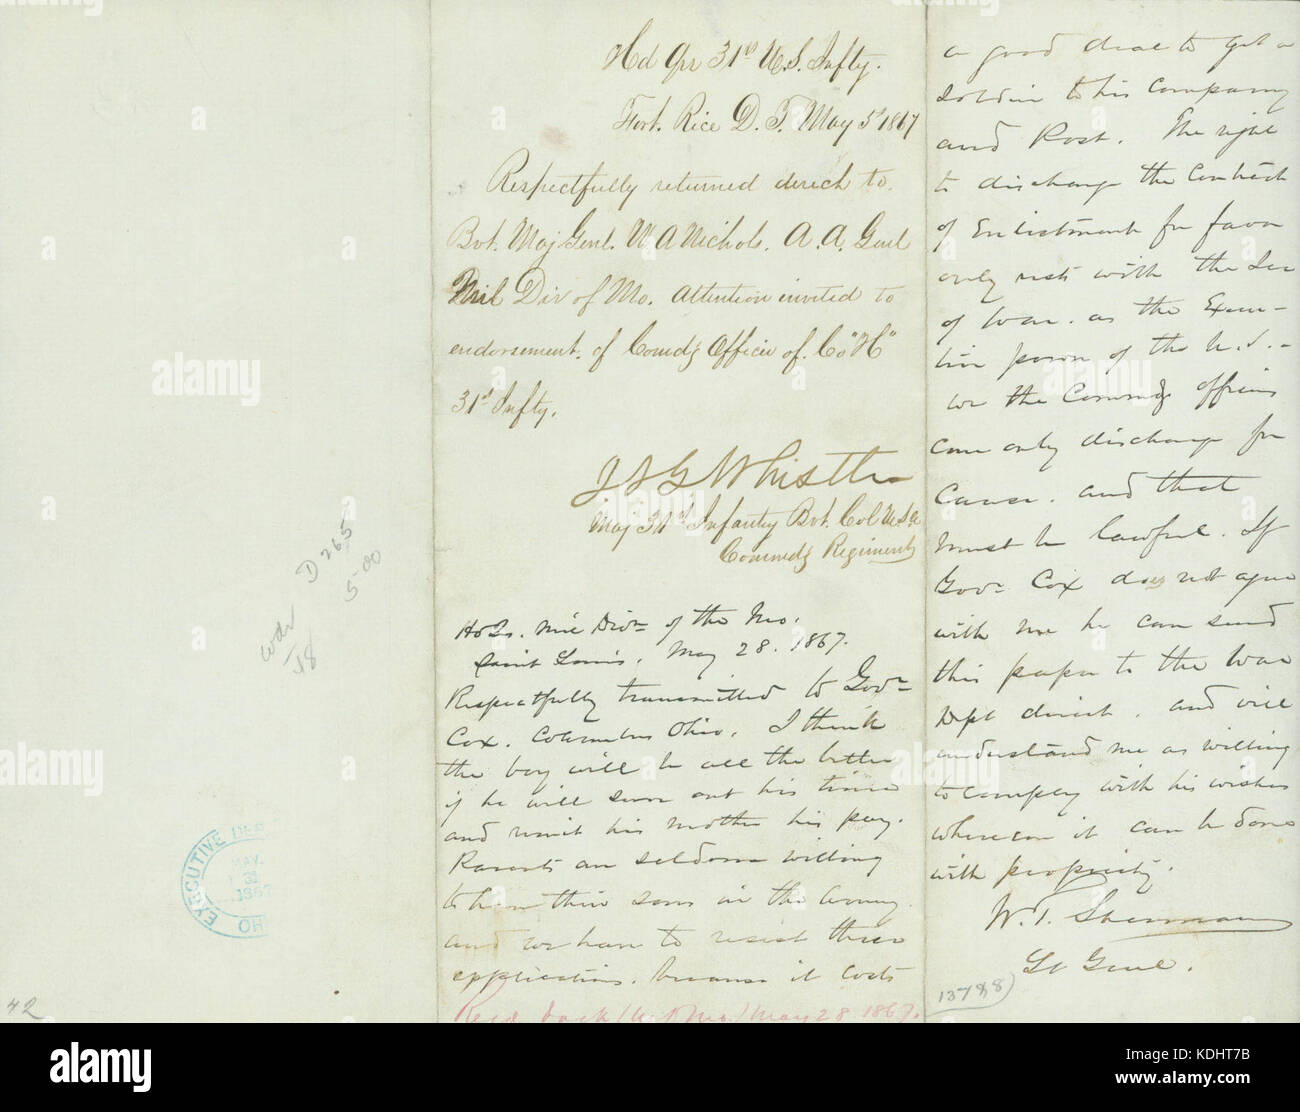 Hd Qrs 31st U.S. Infty.
Fort. Rice D.T. May 5th 1867
Respectfully returned direct to.
Bvt. Maj Genl. W A Nichols. A.A. Genl
Mil Div of Mo. Attention invited to
endorsement. of Comdg Officer of. Co "H"
31st Infty.
Whistler
Maj 31st Infantry Bvt. Col U.S.A
Commdg Regiment
Hd Qrs. Mil Divn of the Mo.
Saint Louis, May 28. 1867.
Respectfully transmitted to Govr
Cox. Columbus Ohio. I think
the boy will be all the better
if he will serve out his time
and remit his mother his pay.
Parents are seldom willing
to have their sons in the Army.
and we have to resist these
applications. because it costs
Recd back (M. D Mo.) May 28 1867.
a good deal to get a
soldier to his company
and Post. The right
to discharge the Contract
of Enlistment for favor
only rests with the Sec
of War. as the Execu-
tive person of the U.S. -
we the Commdg officers
can only discharge for
Cause. and that
must be lawful. If
Govr Cox does not agree
with me he can send
this paper to the War
Dept direct. and will
understand me as willing
to comply with his wishes
whenever it can be done
with propriety.
W. T. Sherman
Lt Genl.
13788
D 265
5-00
wdr
/18
EXECUTIVE DE
MAY.
31
1867
OH
42
alamy
alamy stock photo
Image ID: KDHT7B
www.alamy.com